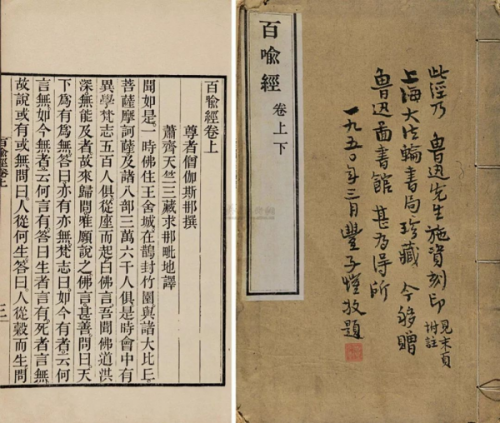 百喻經卷上
尊者僧伽斯那撰
蕭齊天竺三藏求那毗地譯
聞如是一時佛住王舍城在鵲封竹園與諸大比丘
菩薩摩訶薩及諸八部三萬六千人俱是時會中有
異學梵志五百人俱從座而起白佛言吾聞佛道洪
深無能及者故來歸問唯願說之佛言甚善問曰天
下爲有爲無答曰亦有亦無梵志曰如今有者云何
言無如今無者云何言有答曰生者言有死者言無
故說或有或無問曰人從何生答曰人從穀而生問
百喻經卷上
此經乃 魯迅先生施資刻印 見末頁附註
上海大法輪書局珍藏 今移贈
魯迅圖書館 甚爲得所
一九五〇年三月 豐子愷敬題
百喻經 卷上下